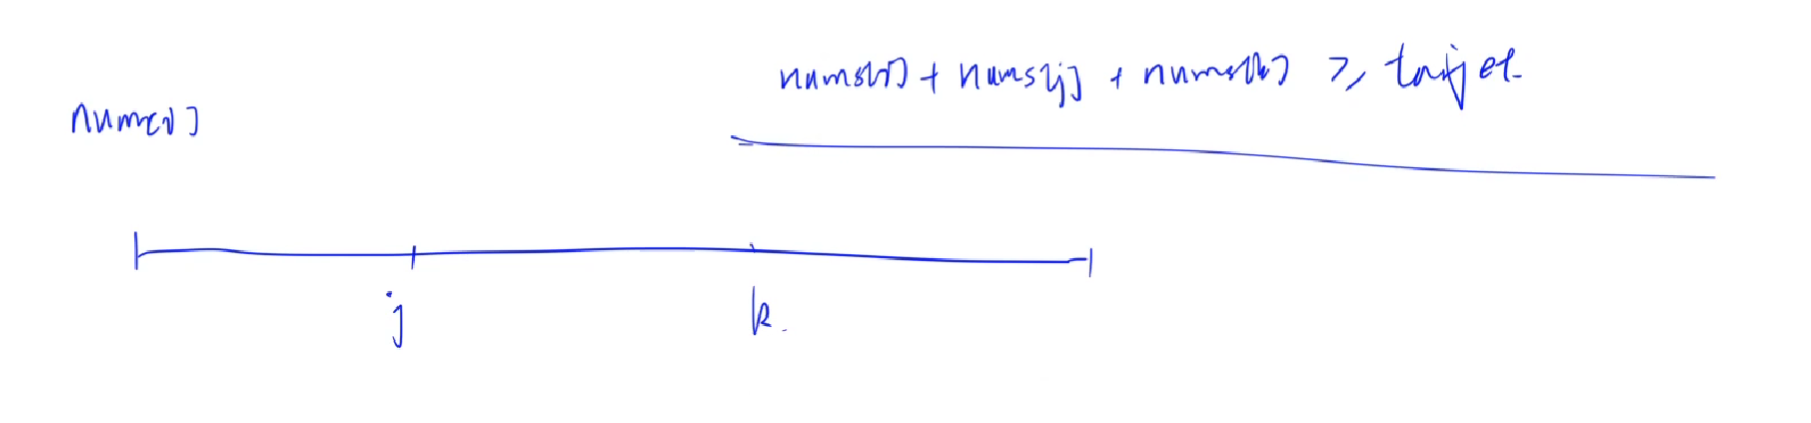 nums[i] + nums[j] + nums[k] >= target
nums[i]
j k